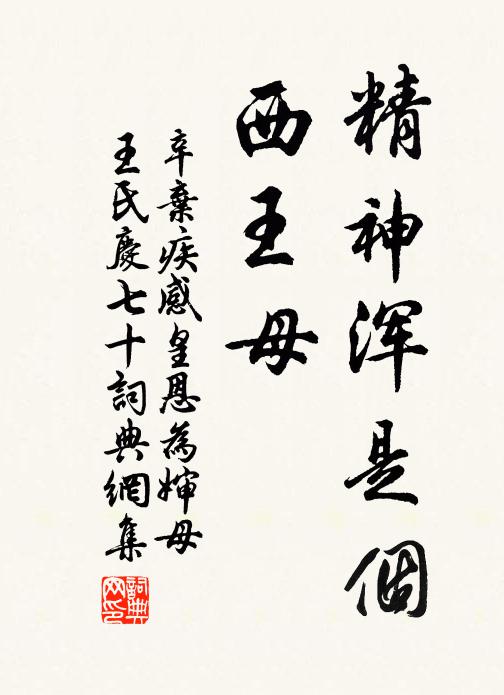 精神渾是個
西王母
辛棄疾感皇恩為嬸母
王氏慶七十詞典網集
詞典网印